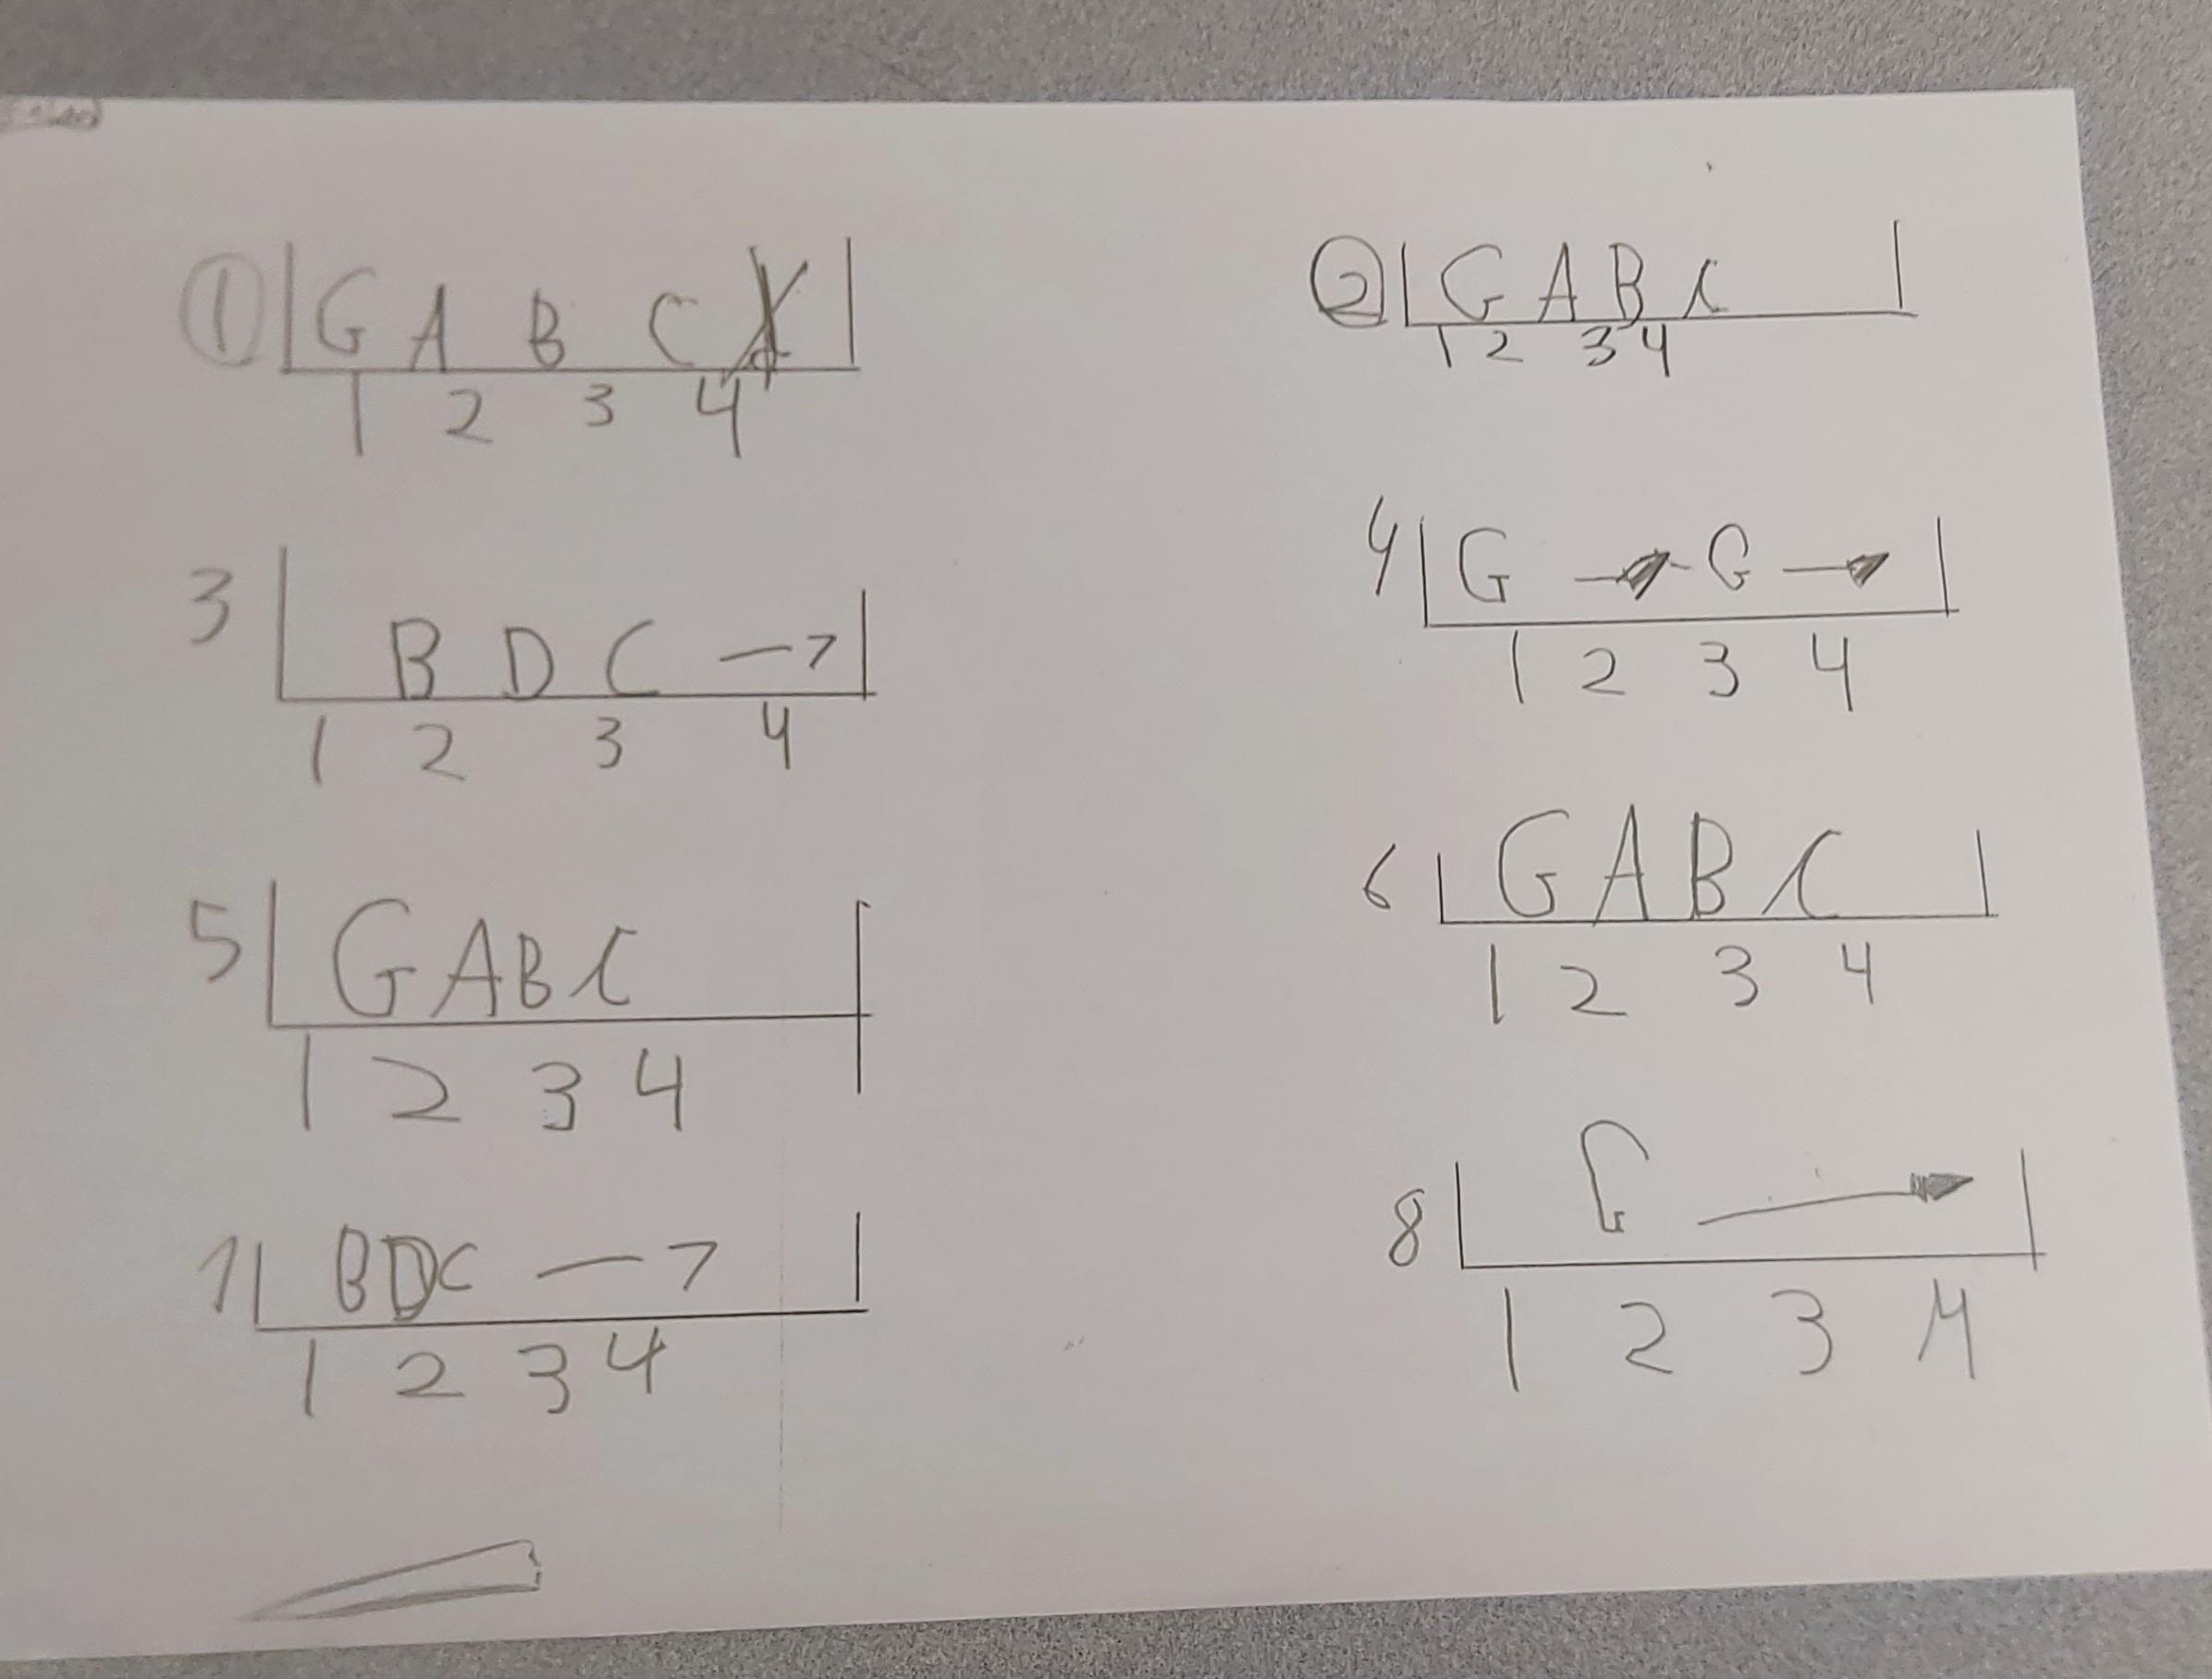 ① G A B C
1 2 3 4
② G A B C
1 2 3 4
3 B D C →
1 2 3 4
4 G → G →
1 2 3 4
5 G A B C
1 2 3 4
6 G A B C
1 2 3 4
7 B D C →
1 2 3 4
8 G →
1 2 3 4